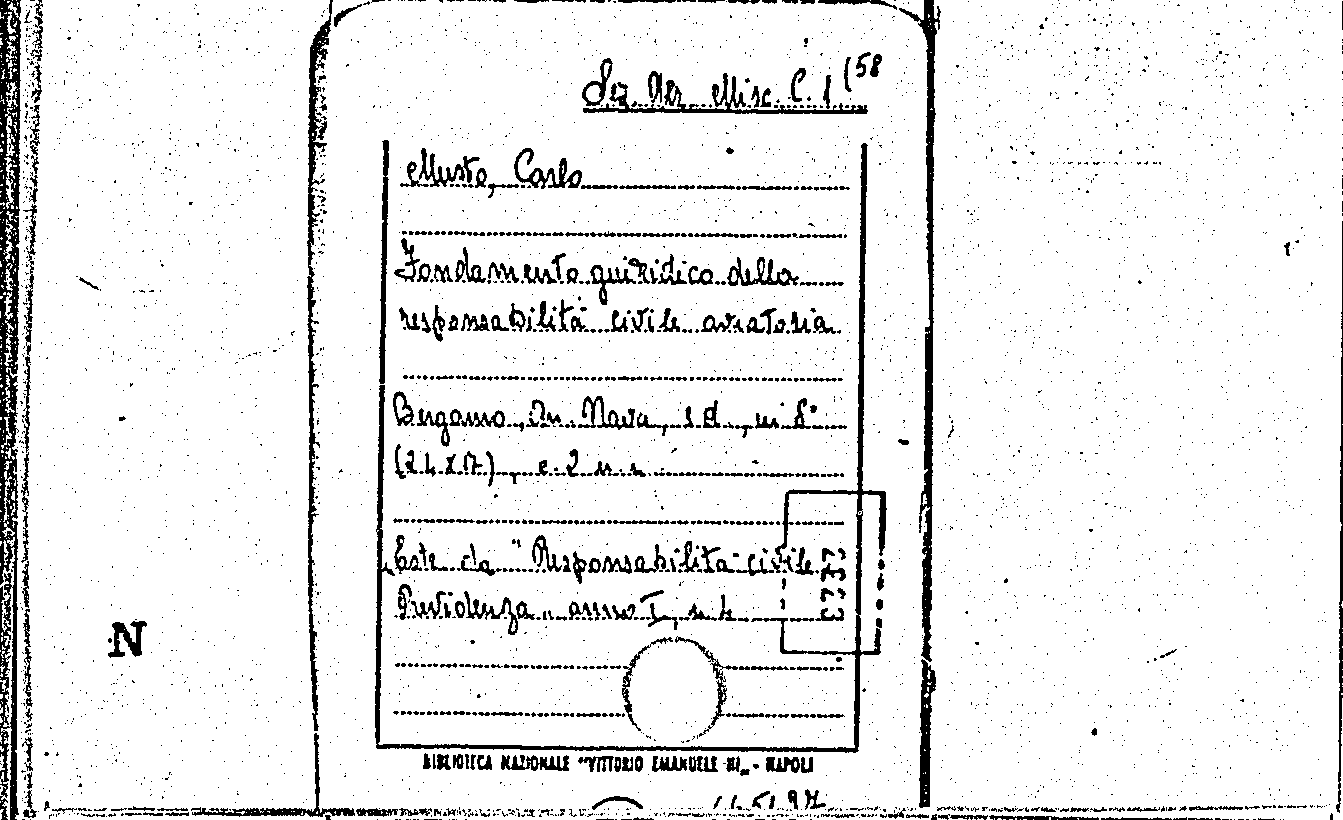 Sez. Aer. Misc. C. 1 (58
Musto, Carlo
Fondamento guiridico della
responsabilità civile aviatoria
Bergamo, An. Nava, s.d., in 8°
(24x17), c. 2 n.n.
Estr. da "Responsabilità civile
Previdenza" anno I, n. 4
N
BIBLIOTECA NAZIONALE "VITTORIO EMANUELE III" - NAPOLI